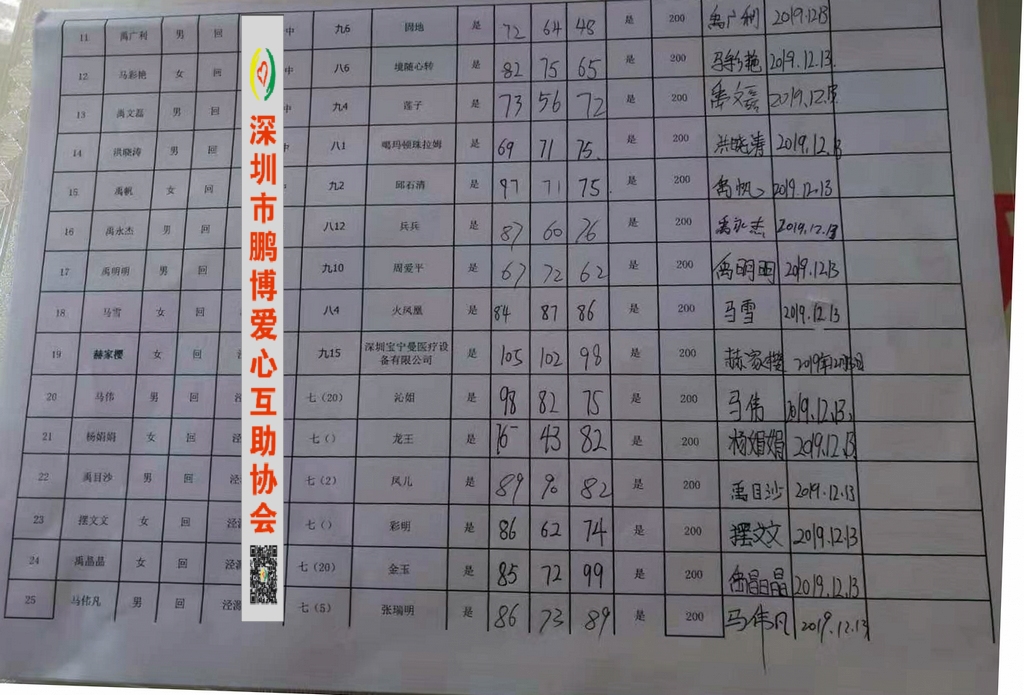 11 禹广利 男 回 中 九6 固地 是 72 64 48 是 200 禹广利 2019.12.13
12 马彩艳 女 回 中 八6 境随心转 是 82 75 65 是 200 马彩艳 2019.12.13.
13 禹文磊 男 回 中 九4 莲子 是 73 56 72 是 200 禹文磊 2019.12.13
14 洪晓涛 男 回 中 八1 噶玛顿珠拉姆 是 69 71 75. 是 200 洪晓涛 2019.12.13
15 禹帆 女 回 中 九2 邱石清 是 97 71 75. 是 200 禹帆 2019.12.13
16 禹永杰 男 回 八12 兵兵 是 87 60 76 是 200 禹永杰 2019.12.13
17 禹明明 男 回 九10 周爱平 是 67 72 62 是 200 禹明明 2019.12.13
18 马雪 女 回 八4 火凤凰 是 84 87 86 是 200 马雪 2019.12.13
19 赫家樱 女 回 九15 深圳宝宁曼医疗设备有限公司 是 105 102 98 是 200 赫家樱 2019年12月13日
20 马伟 男 回 泾 七（20） 沁姐 是 98 82 75 是 200 马伟 2019.12.13.
21 杨娟娟 女 回 泾 七（） 龙王 是 76 43 82 是 200 杨娟娟 2019.12.13
22 禹目沙 男 回 泾 七（2） 凤儿 是 89 90 82 是 200 禹目沙 2019.12.13
23 摆文文 女 回 泾源 七（） 彩明 是 86 62 74 是 200 摆文文 2019.12.13
24 禹晶晶 女 回 泾源 七（20） 金玉 是 85 72 99 是 200 禹晶晶 2019.12.13
25 马伟凡 男 回 泾源 七（5） 张瑞明 是 86 73 89 是 200 马伟凡 2019.12.13
深圳市鹏博爱心互助协会